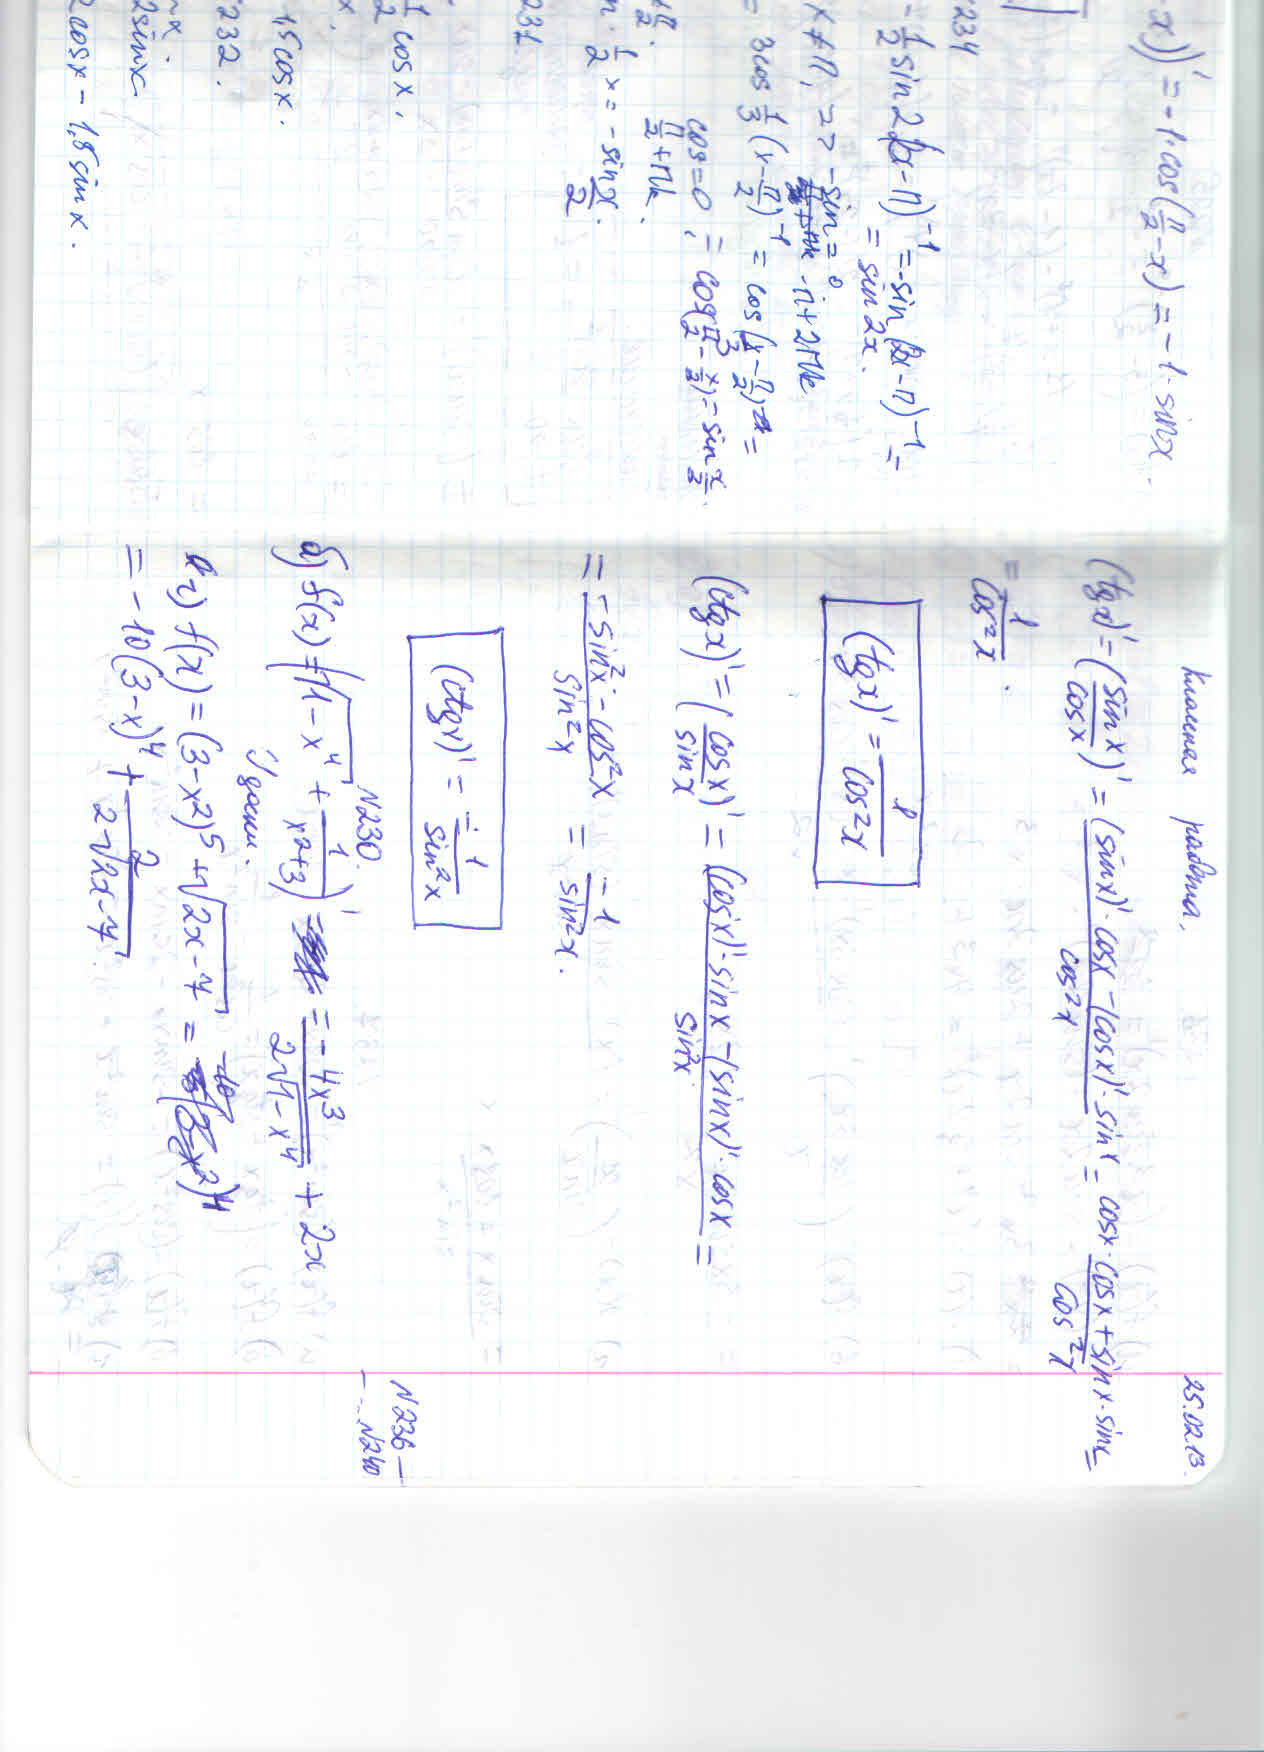 x))' = -1·cos(π/2 - x) = -1·sinx.
234
-1/2 sin2(x-π)^-1 = -sin(2x-π)^-1 =
= sin2x.
x≠π, => -sin=0
-π+2πk
= 3cos 1/3(x-π/2)^-1 = cos(x/3-π/2)=
cos=0, = cos(π/2 - x/3) = sin x/3.
π/2+πk.
1/2 x = -sin x/2.
231.
1/2 cosx.
x.
1,5cosx.
232.
2sinx
2cosx - 1,8sinx.
Классная работа. 25.02.13.
(tgx)' = (sinx/cosx)' = ((sinx)'·cosx - (cosx)'·sinx)/cos²x = (cosx·cosx + sinx·sinx)/cos²x =
= 1/cos²x.
(tgx)' = 1/cos²x
(ctgx)' = (cosx/sinx)' = ((cosx)'·sinx - (sinx)'·cosx)/sin²x =
= (-sin²x - cos²x)/sin²x = -1/sin²x.
(ctgx)' = -1/sin²x
N236 -
- N240
N230.
б) f(x) = (√1-x⁴ + 1/x²+3)' = -4x³/2√1-x⁴ + 2x
г) f(x) = (3-x2)⁵ + √2x-7 =
= -10(3-x)⁴ + 2/2√2x-7